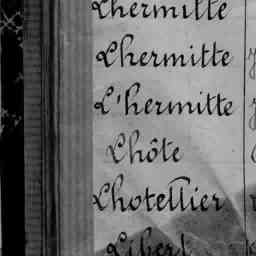 Lhermitte
Lhermitte
L'hermitte
Lhôte
Lhotellier
Libert